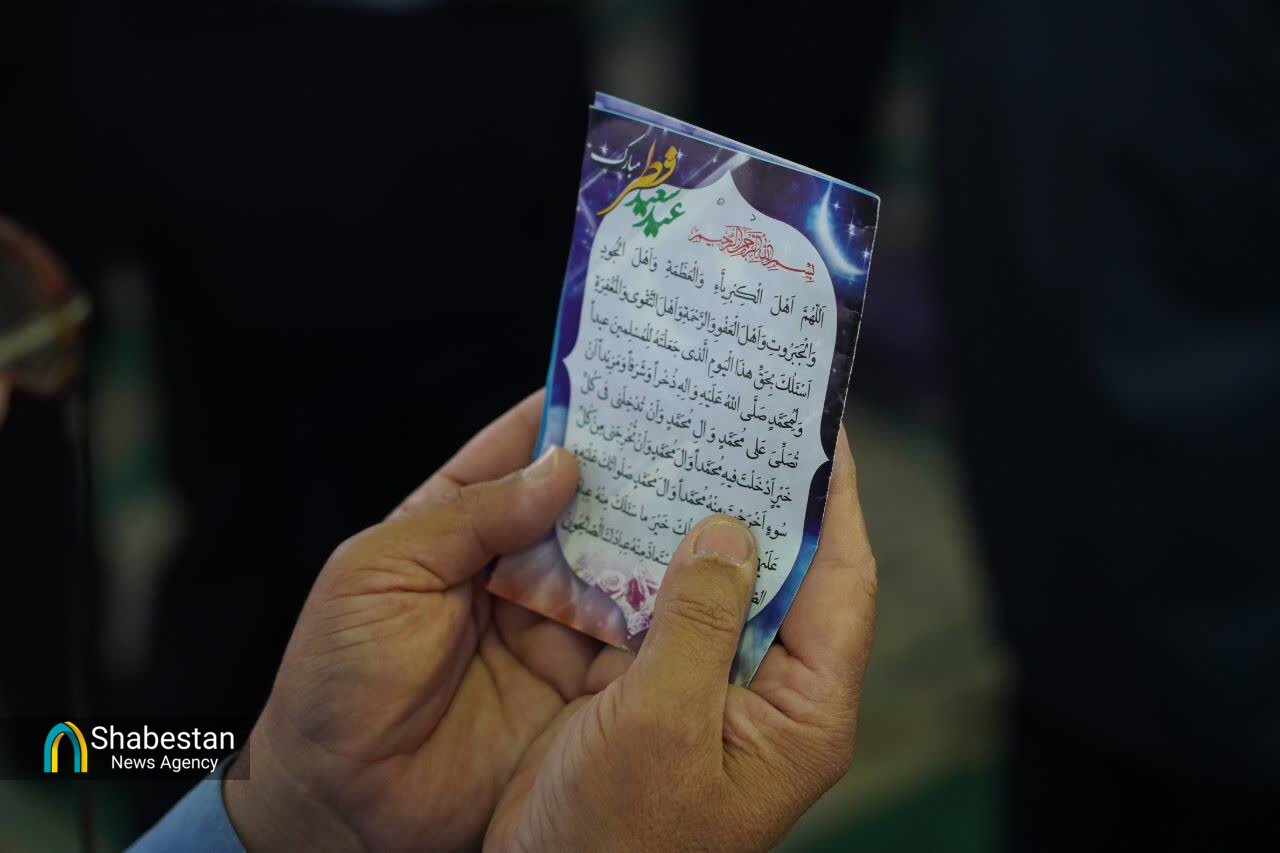 عید سعید فطر مبارک
بِسْمِ اللهِ الرَّحْمنِ الرَّحیمِ
اَللّهُمَّ اَهْلَ الْكِبْرِیاَّءِ وَالْعَظَمَةِ وَاَهْلَ الْجُودِ
وَالْجَبَرُوتِ وَاَهْلَ الْعَفْوِ وَالرَّحْمَةِ وَاَهْلَ التَّقْوى وَالْمَغْفِرَةِ
اَسْئَلُكَ بِحَقِّ هذَا الْیَومِ الَّذى جَعَلْتَهُ لِلْمُسْلِمینَ عیداً
وَلِمُحَمَّدٍ صَلَّى اللهُ عَلَیْهِ وَ الِهِ ذُخْراً وَشَرَفاً وَمَزیْداً اَنْ
تُصَلِّىَ عَلى مُحَمَّدٍ وَ الِ مُحَمَّدٍ وَاَنْ تُدْخِلَنى فى كُلِّ
خَیْرٍ اَدْخَلْتَ فیهِ مُحَمَّداً وَالَ مُحَمَّدٍ وَاَنْ تُخْرِجَنى مِنْ كُلِّ
سُوَّءٍ اَخْرَجْتَ مِنْهُ مُحَمَّداً وَالَ مُحَمَّدٍ صَلَواتُكَ عَلَیْهِ وَ
خَیْرَ ما سَئَلَكَ مِنْهُ
مِنْهُ عِبادُكَ الْصّالِحُونَ
Shabestan
News Agency